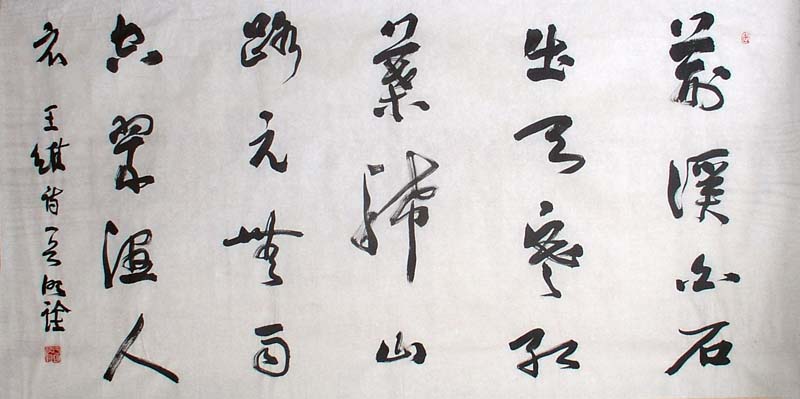 荆溪白石
出天寒红
葉稀山
路元無雨
空翠湿人
衣 王維诗